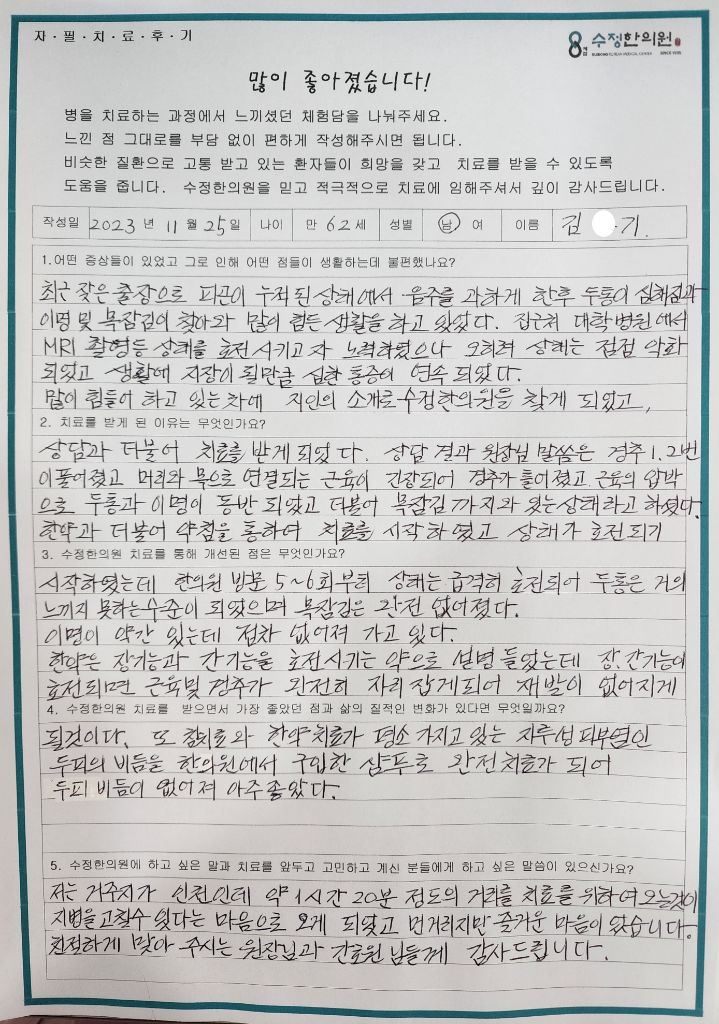 자·필·치·료·후·기
수정한의원
SUJEONG KOREAN MEDICAL CENTER SINCE 1995
많이 좋아졌습니다!
병을 치료하는 과정에서 느끼셨던 체험담을 나눠주세요.
느낀 점 그대로를 부담 없이 편하게 작성해주시면 됩니다.
비슷한 질환으로 고통 받고 있는 환자들이 희망을 갖고 치료를 받을 수 있도록
도움을 줍니다. 수정한의원을 믿고 적극적으로 치료에 임해주셔서 깊이 감사드립니다.
작성일 2023 년 11 월 25 일 나이 만 62 세 성별 남 여 이름 김 기.
1.어떤 증상들이 있었고 그로 인해 어떤 점들이 생활하는데 불편했나요?
최근 잦은 출장으로 피곤이 누적된 상태에서 음주를 과하게 한후 두통이 심해짐과
이명 및 목잠김이 찾아와 많이 힘든 생활을 하고 있었다. 집근처 대학병원에서
MRI 촬영등 상태를 호전시키고자 노력하였으나 오히려 상태는 점점 악화
되었고 생활에 지장이 될만큼 심한 통증이 연속 되었다.
많이 힘들어 하고 있는차에 지인의 소개로 수정한의원을 찾게 되었고,
2. 치료를 받게 된 이유는 무엇인가요?
상담과 더불어 치료를 받게되었다. 상담 결과 원장님 말씀은 경추 1.2번
이 틀어졌고 머리와 목으로 연결되는 근육이 긴장되어 경추가 틀어졌고 근육의 압박
으로 두통과 이명이 동반 되었고 더불어 목잠김까지 와 있는 상태라고 하셨다.
한약과 더불어 약침을 통하여 치료를 시작하였고 상태가 호전되기
3. 수정한의원 치료를 통해 개선된 점은 무엇인가요?
시작하였는데 한의원 방문 5~6회부터 상태는 급격히 호전되어 두통은 거의
느끼지 못하는 수준이 되었으며 목잠김은 완전 없어졌다.
이명이 약간 있는데 점차 없어져 가고 있다.
한약은 장기능과 간기능을 호전시키는 약으로 설명 들었는데 장.간기능이
호전되면 근육및 경추가 완전히 자리 잡게되어 재발이 없어지게
4. 수정한의원 치료를 받으면서 가장 좋았던 점과 삶의 질적인 변화가 있다면 무엇일까요?
될것이다. 또 침치료와 한약치료가 평소 가지고 있는 지루성 피부염인
두피의 비듬을 한의원에서 구입한 샴푸로 완전치료가 되어
두피 비듬이 없어져 아주 좋았다.
5. 수정한의원에 하고 싶은 말과 치료를 앞두고 고민하고 계신 분들에게 하고 싶은 말씀이 있으신가요?
저는 거주지가 인천인데 약 1시간 20분 정도의 거리를 치료를 위하여 오늘것이
지병을 고칠수 있다는 마음으로 오게 되었고 먼거리지만 즐거운 마음이 었습니다.
친절하게 맞아 주시는 원장님과 간호원님들께 감사드립니다.